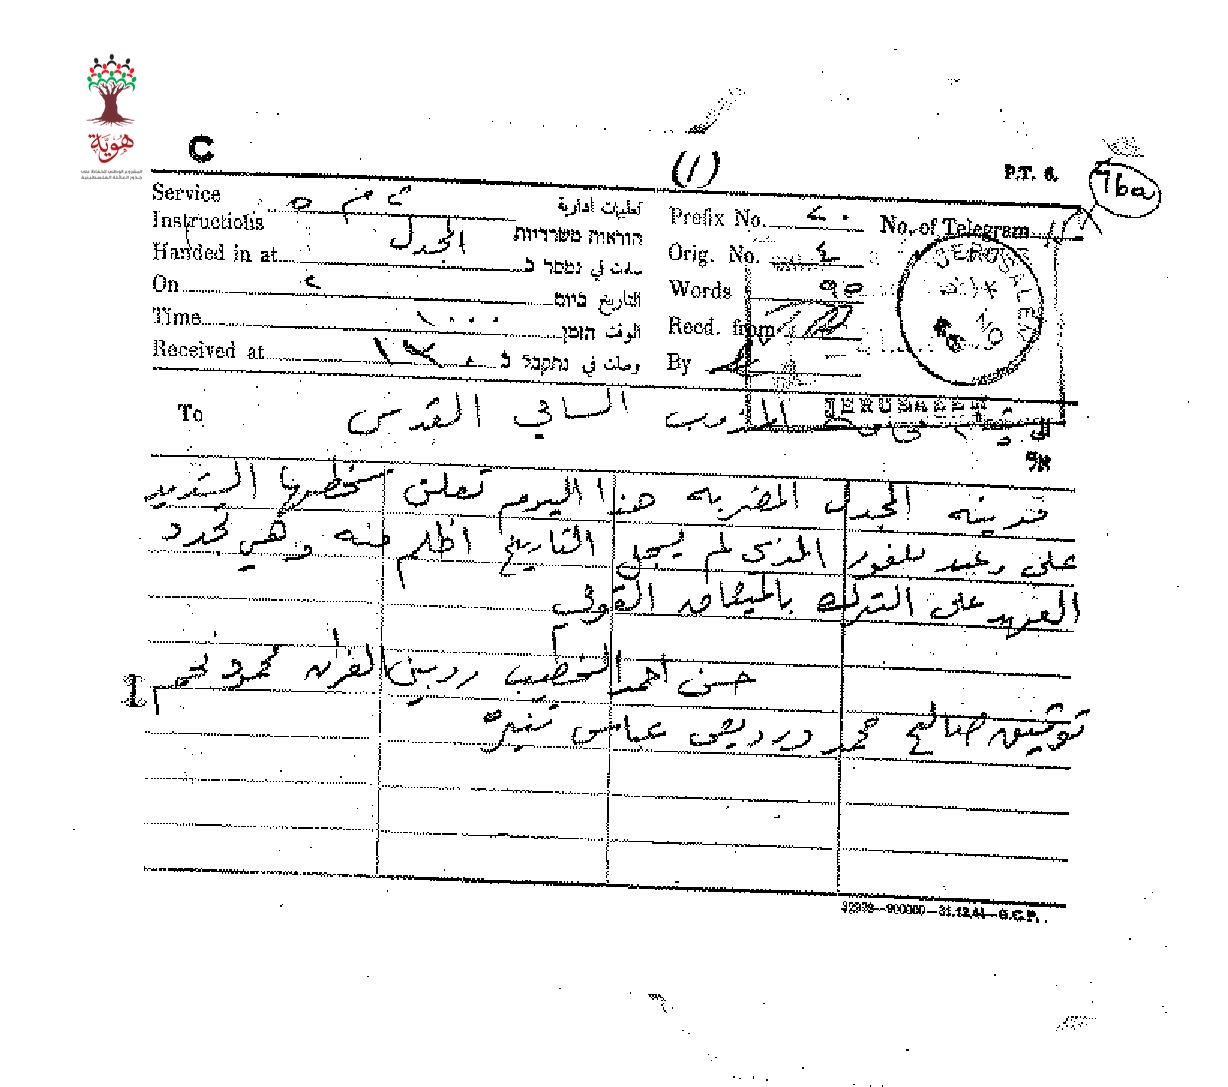 هوية
C
(1)
P.T. 6.
76a
Service
Instructions
تعليمات ادارية
הוראות משרדיות
Prefix No. ٢٠
No. of Telegram
Handed in at المجدل سلمت في נמסר ב
Orig. No. ٤
On ٢ التاريخ ביום
Words ٩٥
Time ١٠٠٠ الوقت הזמן
Recd. from
Received at وصلت في נתקבל ב
By
JERUSALEM
JERUSALEM
To
المندوب السامي القدس
אל
مدينه المجدل المضربه هذا اليوم تعلن سخطها الشديد
على وعد بلفور الذى لم يسجل التاريخ اظلم منه وهي تجدد
العهد على التمسك بالميثاق القومي
حسن احمد الخطيب روبين الفران محمود نجم
توفيق صالح محمد درويش عباس
1
32979—900000—31.12.44—G.C.P.